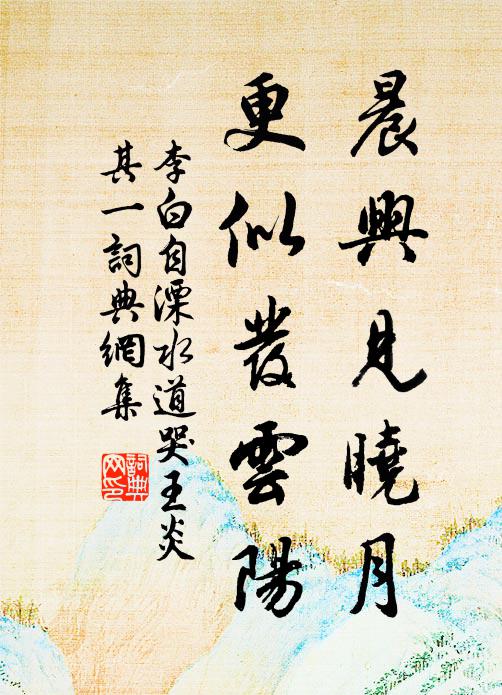 晨興見曉月
更似發雲陽
李白自溧水道哭王炎
其一詞典網集
詞典
网印